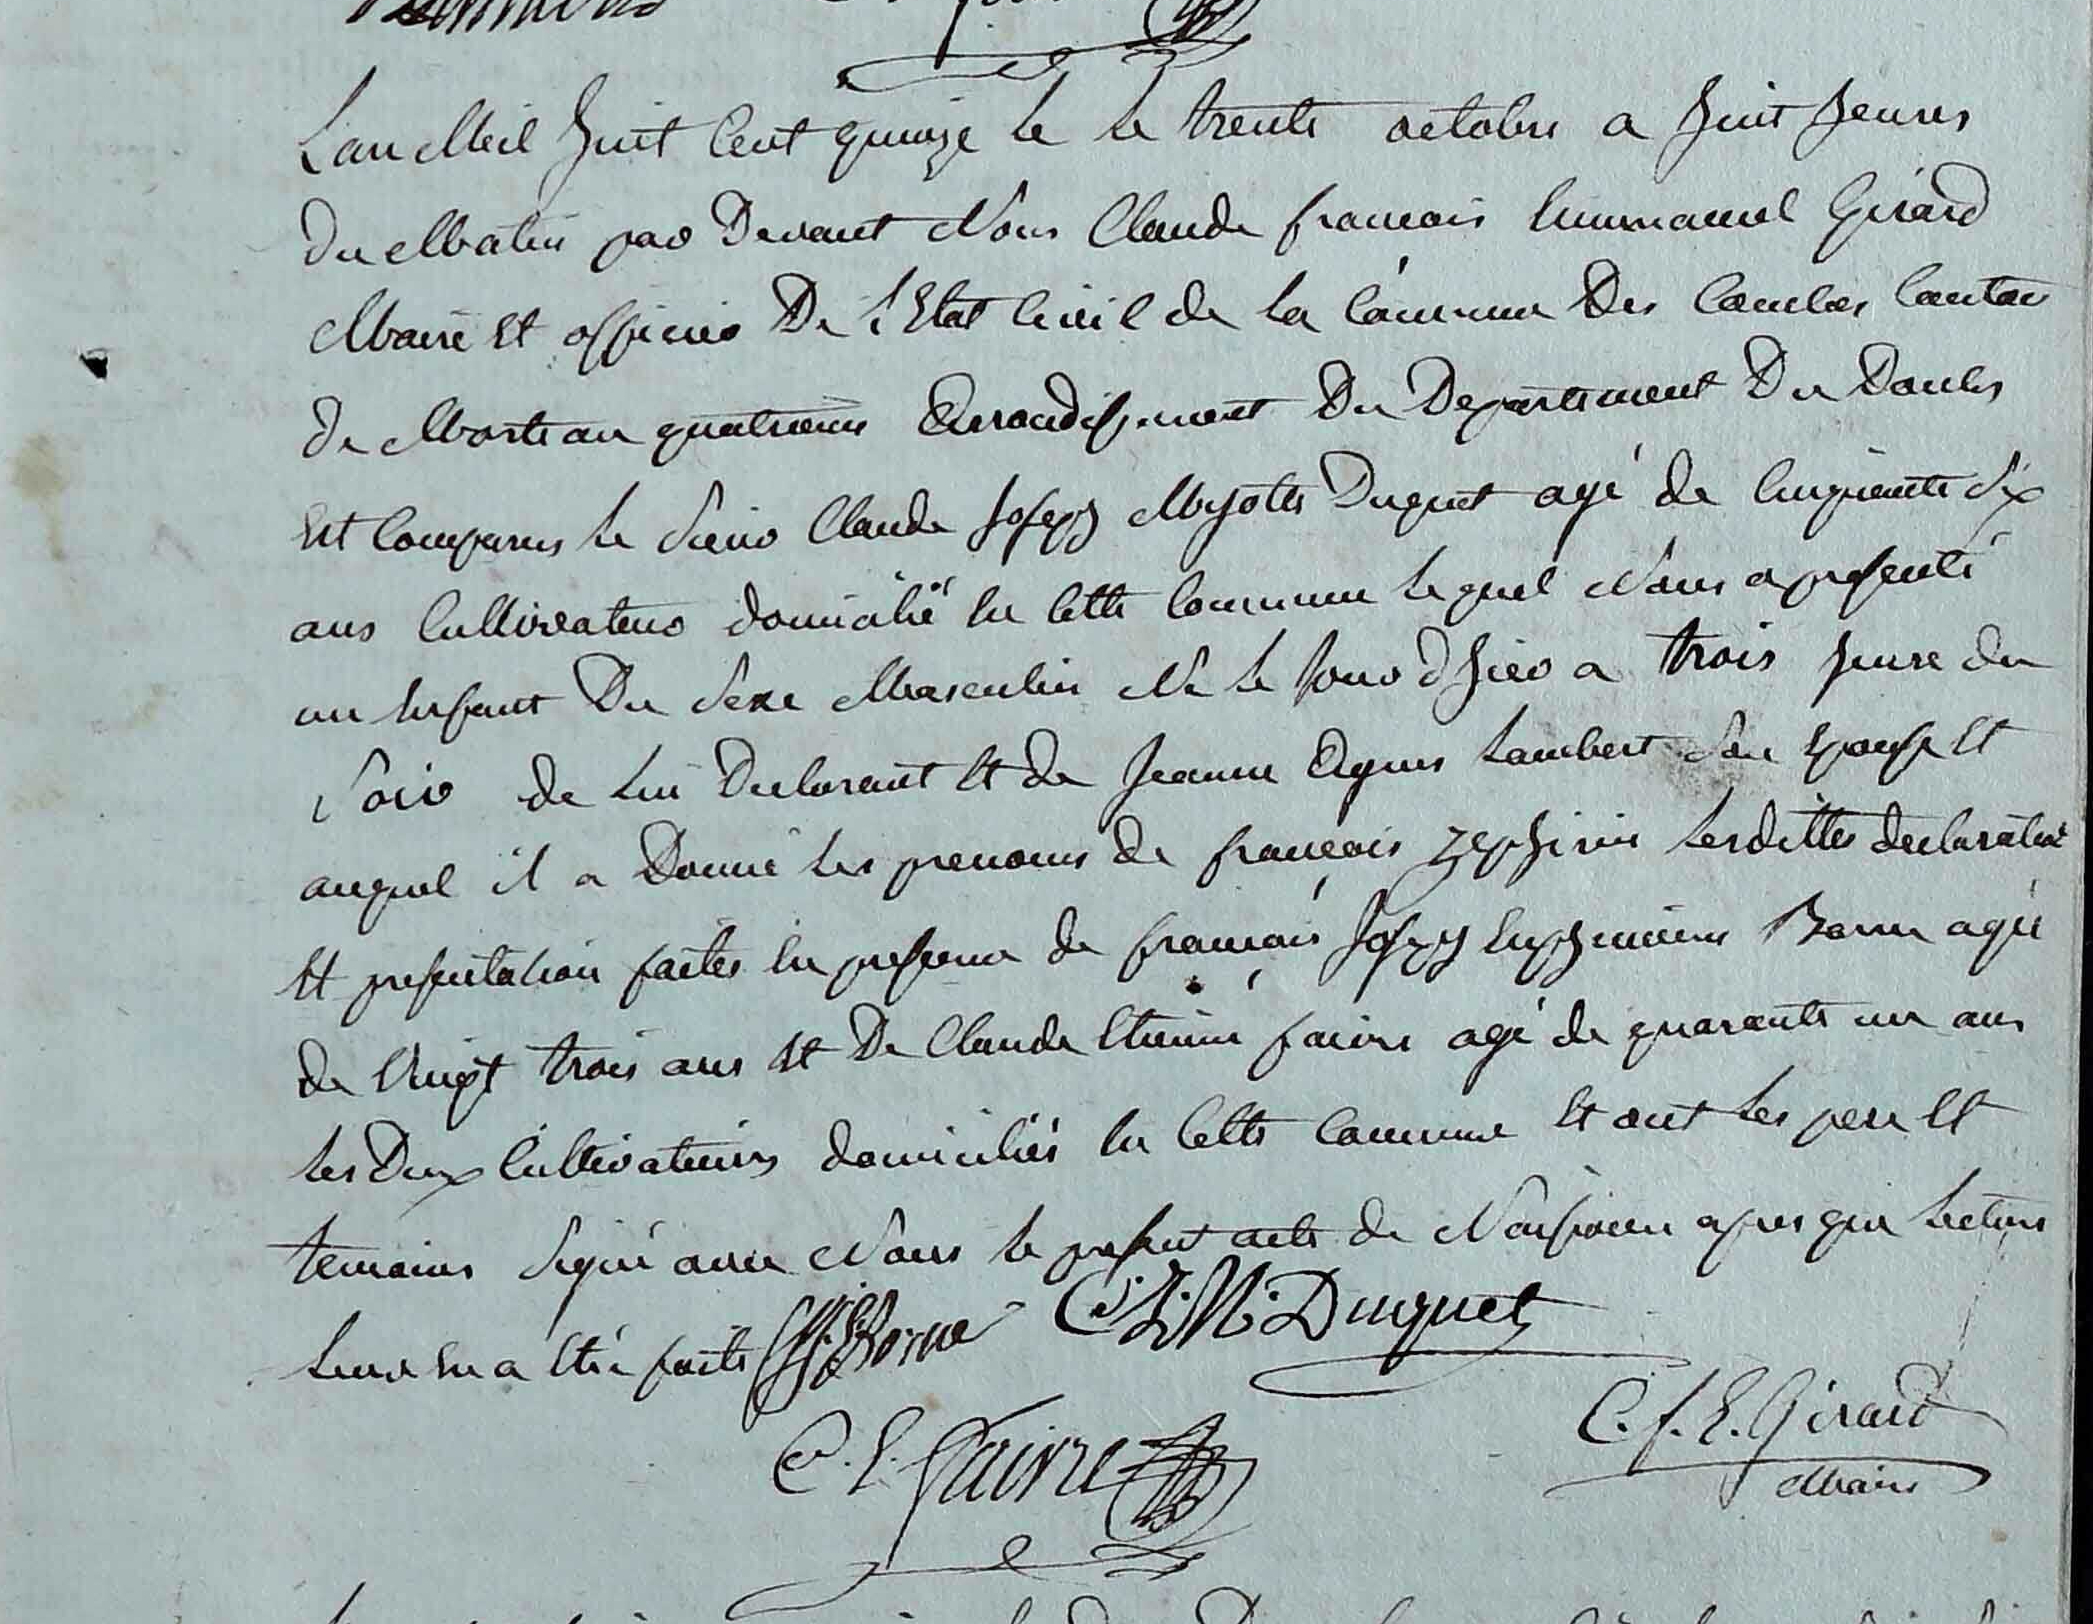 L'an Mil huit Cent quinze le le trente octobre a huit heures
du Matin par Devant Nous Claude francois Emmanuel Girard
Maire Et officier De l'Etat Civil de la Commune Des Combes Canton
de Morteau quatrieme Arrondissement Du Departement Du Doubs
Est Comparus le Sieur Claude Joseph Mygotte Duquet agé de Cinquante Six
ans Cultivateur domicilié En Cette Commune lequel Nous a presenté
un Enfant Du Sexe Masculin Né le Jour d'hier a trois heure du
Soir de lui Declarant Et de Jeanne Agnes Lambert Son Epouse Et
auquel il a Donné les prenoms de françois Zephirin lesdittes declaration
Et presentation faites En presence de francois Joseph Euphemien Borne agé
de Vingt trois ans Et De Claude Etienne faivre agé de quarante un ans
les Deux Cultivateurs domiciliés En Cette Commune Et ont les pere Et
temoins Signé avec Nous le present acte de Naissance apres que lecture
leur En a Eté faite Borne C. J. M. Duquet
C. E. Faivre C. f. E. Girard
Maire